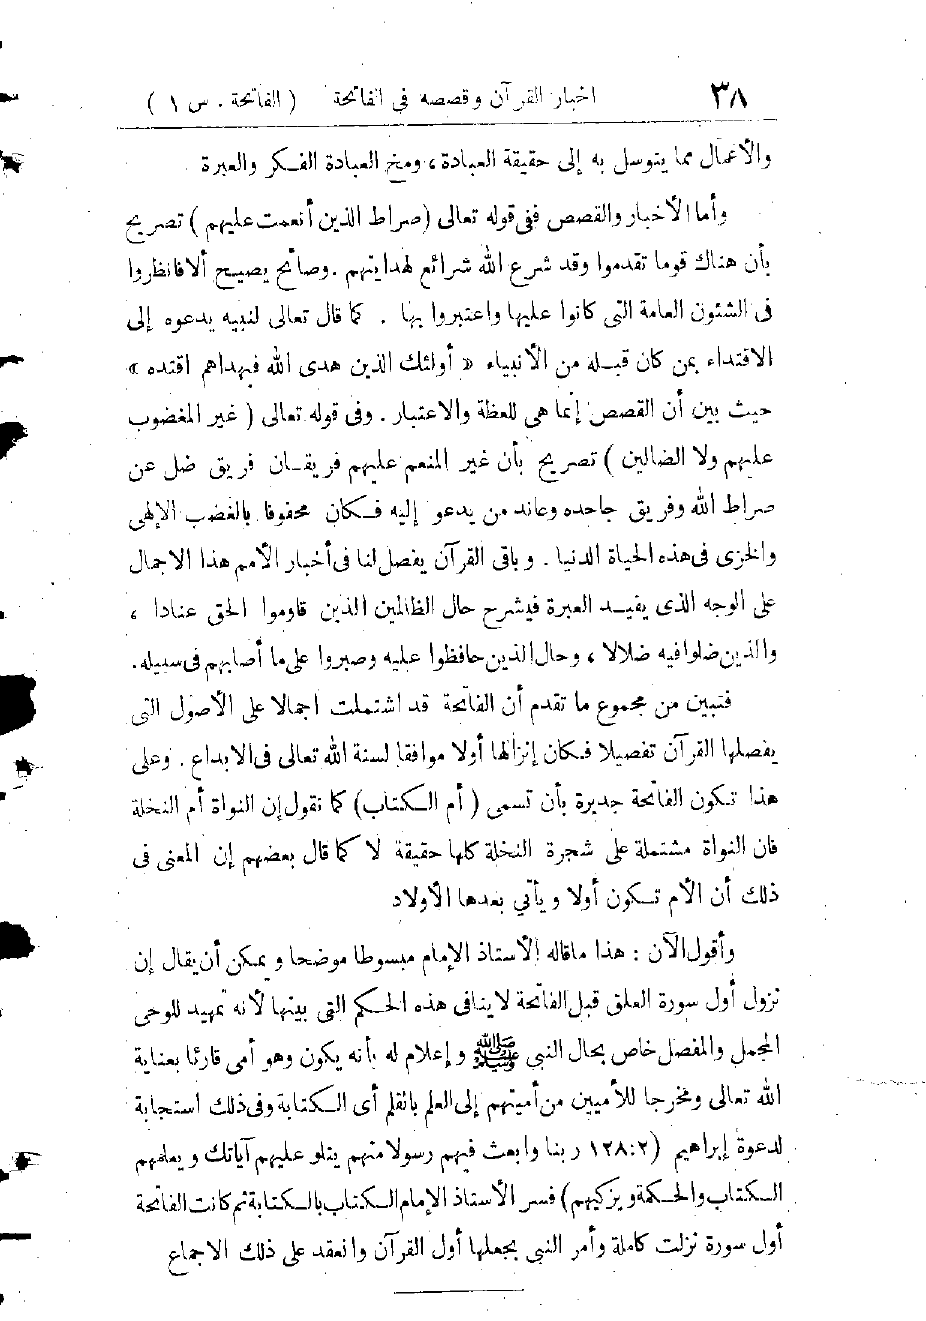 ٣٨ اخبار القرآن وقصصه فى الفاتحة ( الفاتحة . س ١ )
والأعمال مما يتوسل به إلى حقيقة العبادة ، ومخ العبادة الفكر والعبرة
وأما الأخبار والقصص ففى قوله تعالى ( صراط الذين أنعمت عليهم ) تصريح
بأن هناك قوما تقدموا وقد شرع الله شرائع لهدايتهم . وصائح يصيح ألا فانظروا
فى الشئون العامة التى كانوا عليها واعتبروا بها . كما قال تعالى لنبيه يدعوه إلى
الاقتداء بمن كان قبله من الأنبياء « أولئك الذين هدى الله فبهداهم اقتده »
حيث بين أن القصص إنما هى للعظة والاعتبار . وفى قوله تعالى ( غير المغضوب
عليهم ولا الضالين ) تصريح بأن غير المنعم عليهم فريقان فريق ضل عن
صراط الله وفريق جاحده وعاند من يدعو إليه فكان محفوفا بالغضب الإلهى
والخزى فى هذه الحياة الدنيا . وباقى القرآن يفصل لنا فى أخبار الأمم هذا الاجمال
على الوجه الذى يفيد العبرة فيشرح حال الظالمين الذين قاوموا الحق عنادا ،
والذين ضلوا فيه ضلالا ، وحال الذين حافظوا عليه وصبروا على ما أصابهم فى سبيله .
فتبين من مجموع ما تقدم أن الفاتحة قد اشتملت اجمالا على الأصول التى
يفصلها القرآن تفصيلا فكان إنزالها أولا موافقا لسنة الله تعالى فى الابداع . وعلى
هذا تكون الفاتحة جديرة بأن تسمى ( أم الكتاب ) كما نقول إن النواة أم النخلة
فان النواة مشتملة على شجرة النخلة كلها حقيقة لا كما قال بعضهم إن المعنى فى
ذلك أن الأم تكون أولا ويأتي بعدها الأولاد
وأقول الآن : هذا ماقاله الأستاذ الإمام مبسوطا موضحا ويمكن أن يقال إن
نزول أول سورة العلق قبل الفاتحة لا ينافى هذه الحكم التى بينها لأنه تمهيد للوحى
المجمل والمفصل خاص بحال النبى ﷺ وإعلام له بأنه يكون وهو أمى قارئا بعناية
الله تعالى ومخرجا للأميين من أميتهم إلى العلم بالقلم أى الكتابة وفى ذلك استجابة
لدعوة إبراهيم (١٢٨:٢ ربنا وابعث فيهم رسولا منهم يتلو عليهم آياتك ويعلمهم
الكتاب والحكمة ويزكيهم) فسر الأستاذ الإمام الكتاب بالكتابة ثم كانت الفاتحة
أول سورة نزلت كاملة وأمر النبى بجعلها أول القرآن وانعقد على ذلك الاجماع